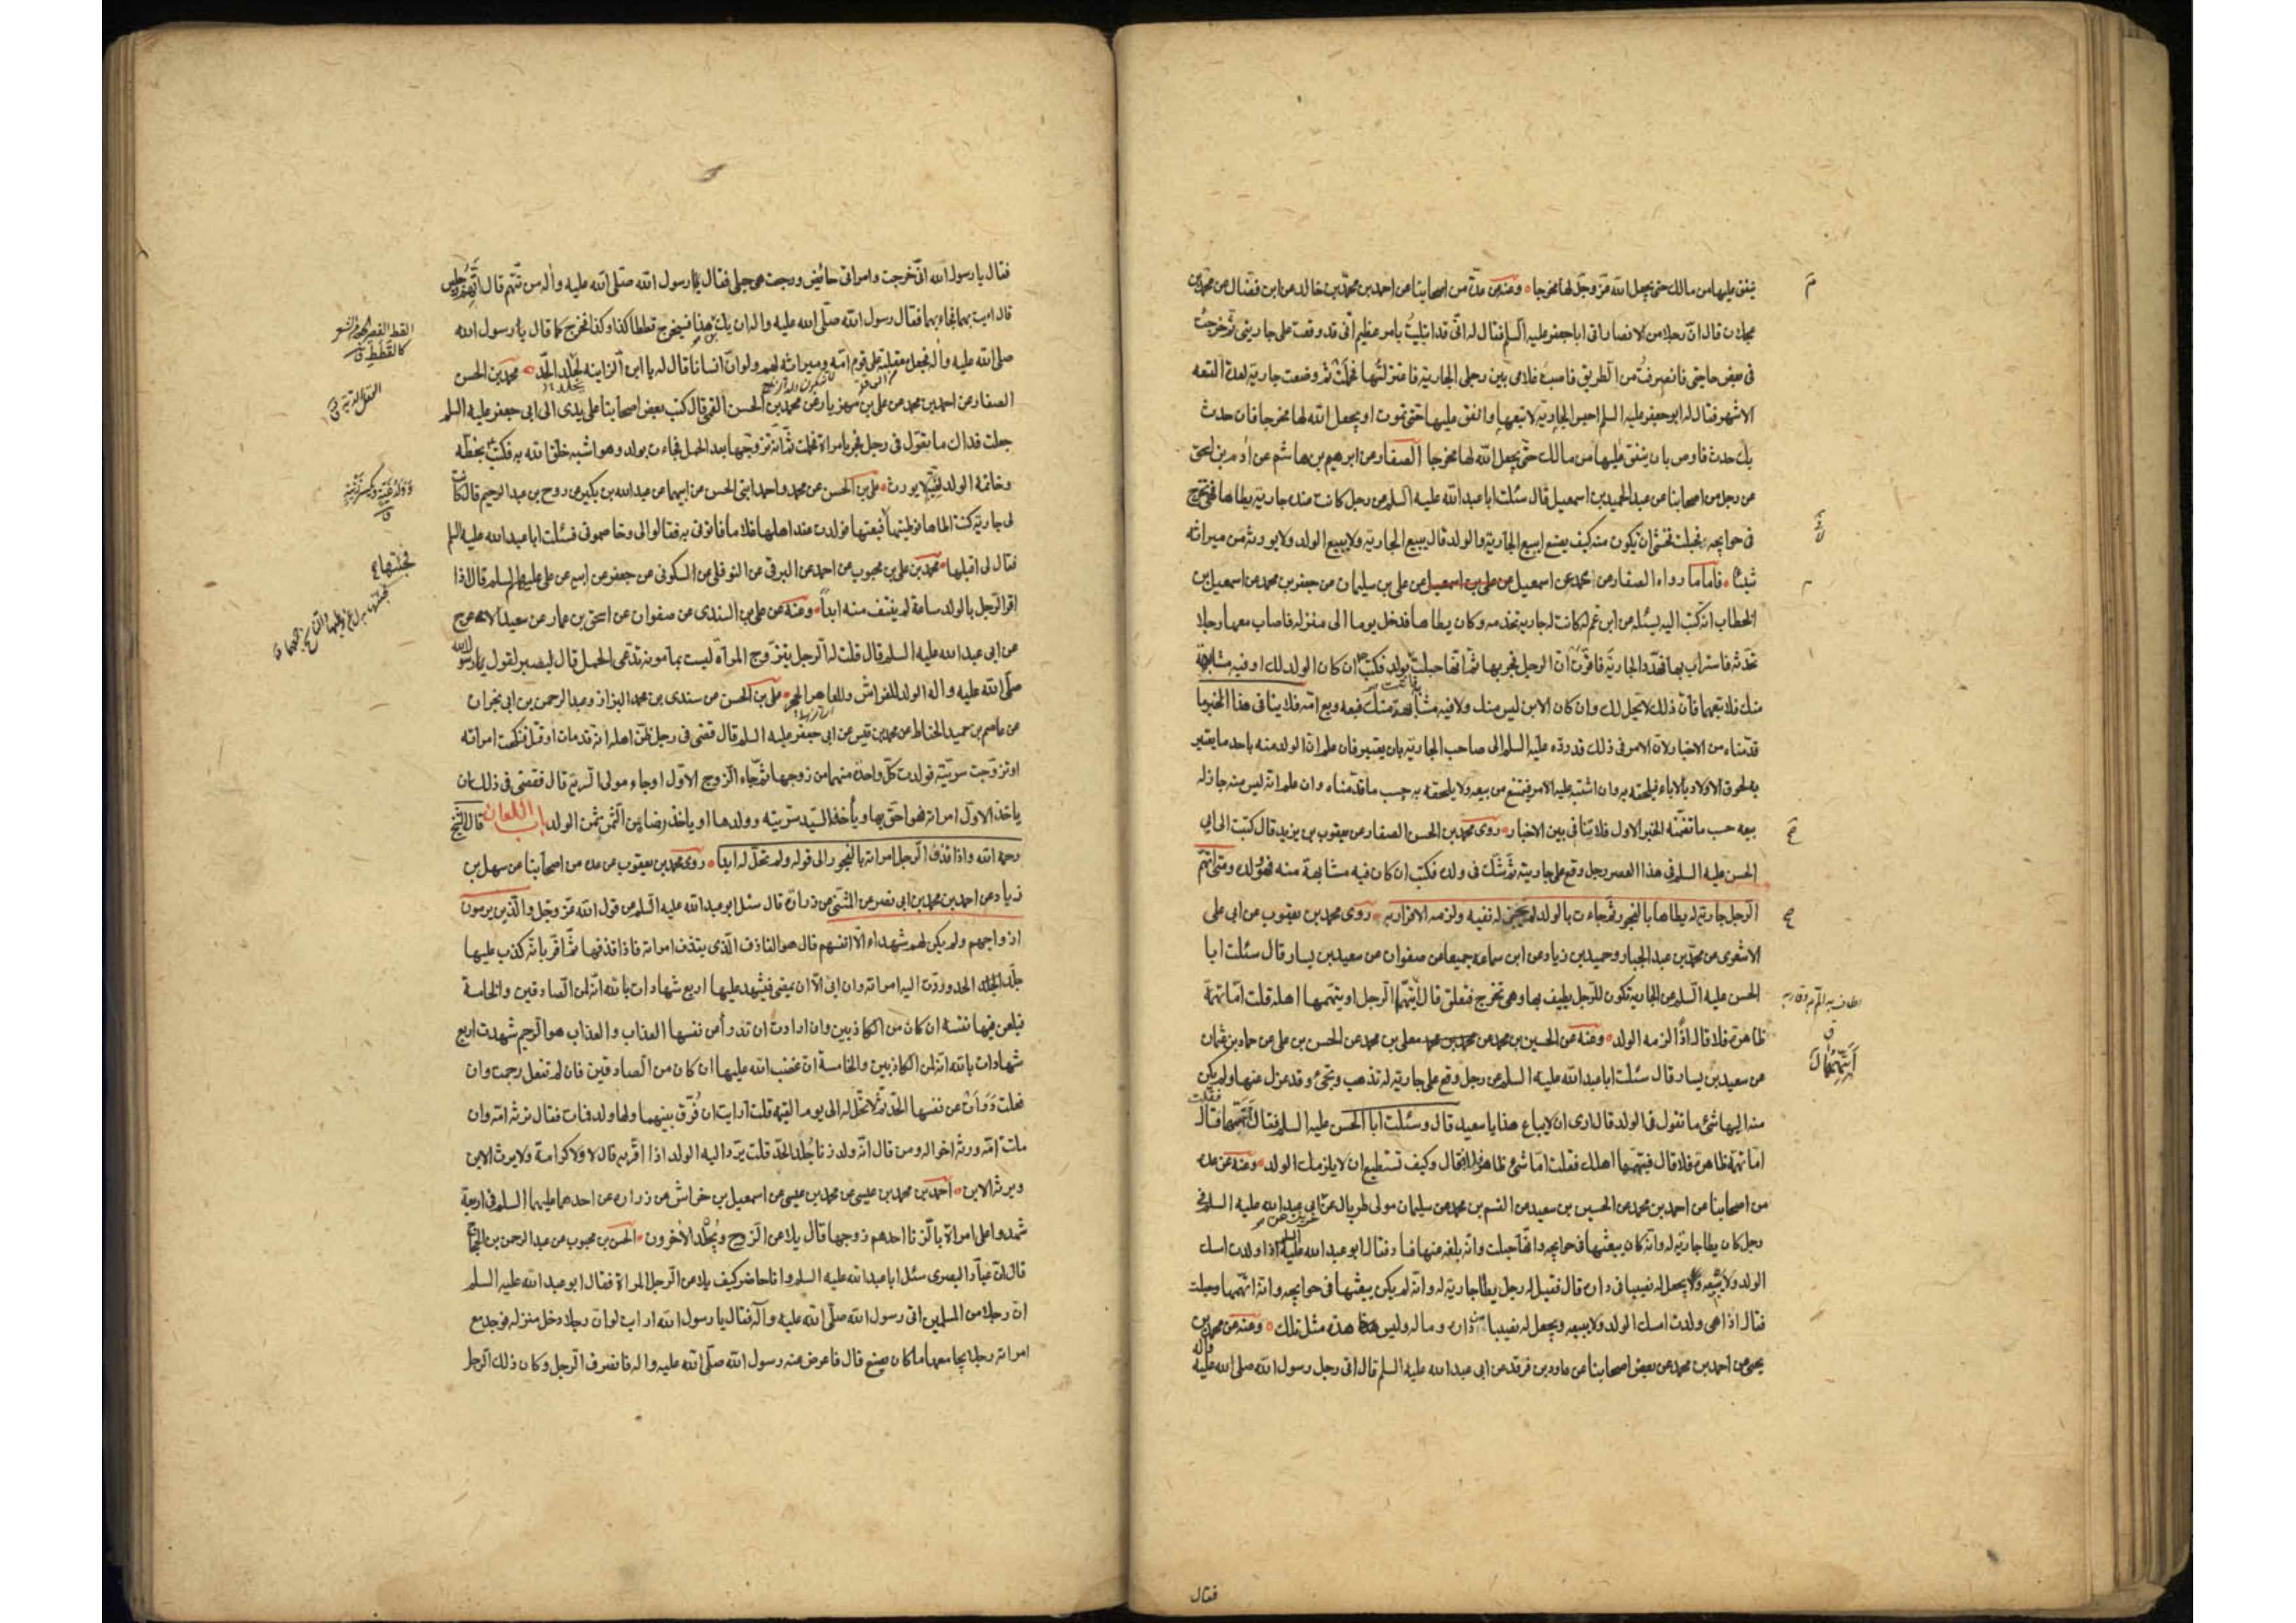 ينفق عليها من مالك حتى يجعل الله عز وجل لها مخرجا وعنه عن عدة من اصحابنا عن احمد بن محمد بن خالد عن ابن فضال عن محمد بن
عجلان قال ان رجلا من الانصار اتى ابا جعفر عليه السلم فقال له انى قد ابتليت بامر عظيم انى قد وقعت على جاريتى ثم خرجت
فى بعض حاجتى فانصرفت من الطريق فاصبت غلامى بين رجلى الجارية فاعتزلتها فحبلت ثم وضعت جارية لعدة التسعة
الاشهر فقال له ابو جعفر عليه السلم احبس الجارية لا تبعها وانفق عليها حتى تموت او يجعل الله لها مخرجا فان حدث
بك حدث فاوص بان ينفق عليها من مالك حتى يجعل الله لها مخرجا الصفار عن ابرهيم بن هاشم عن ادم بن اسحق
عن رجل من اصحابنا عن عبد الحميد بن اسمعيل قال سئلت ابا عبد الله عليه السلم عن رجل كانت عنده جارية يطاها فتخرج
فى حوايجه فحبلت فخشى ان يكون منه كيف يصنع ايبيع الجارية والولد قال يبيع الجارية ولا يبيع الولد ولا يورثه من ميراثه
شيئا فاما ما رواه الصفار عن محمد بن اسمعيل عن على بن اسمعيل عن على بن سليمان عن جعفر بن محمد بن اسمعيل بن
الخطاب انه كتب اليه يسئله عن ابن عم له كانت له جارية تخدمه وكان يطاها فدخل يوما الى منزله فاصاب معها رجلا
تحدثه فاستراب بها فهدد الجارية فاقرت ان الرجل فجر بها ثم انها حبلت بولد فكتب ان كان الولد لك او فيه مشابهة
منك فلا تبعهما فان ذلك لا يحل لك وان كان الابن ليس منك ولا فيه مشابهة منك فبعه وبع امه فلا ينافى هذا الخبر ما
قدمناه من الاخبار لان الامر فى ذلك قد رده عليه السلم الى صاحب الجارية بان يعتبر فان علم ان الولد منه باحد ما يعتبر
به لحوق الاولاد بالاباء فيلحقه به وان اشتبه عليه الامر فيمتنع من بيعه ولا يلحقه به حسب ما قدمناه وان علم انه ليس منه جاز له
بيعه حسب ما تضمنه الخبر الاول فلا تنافى بين الاخبار روى محمد بن الحسن الصفار عن يعقوب بن يزيد قال كتبت الى ابى
الحسن عليه السلم فى هذا العصر رجل وقع على جاريته ثم شك فى ولده فكتب ان كان فيه مشابهة منه فهو ولده ومتى اتهم
الرجل جارية له يطاها بالفجور ثم جاءت بالولد لم يجز له نفيه ولزمه الاقرار به روى محمد بن يعقوب عن ابى على
الاشعرى عن محمد بن عبد الجبار وحميد بن زياد عن ابن سماعة جميعا عن صفوان عن سعيد بن يسار قال سئلت ابا
الحسن عليه السلم عن الجارية تكون للرجل يطيف بها وهى تخرج فتعلق قال ايتهمها الرجل او يتهمها اهله قلت اما تهمة
ظاهرة فلا قال اذا لزمه الولد وعنه عن الحسين بن محمد عن محمد بن محمد معلى بن محمد عن الحسن بن على عن حماد بن عثمان
عن سعيد بن يسار قال سئلت ابا عبد الله عليه السلم عن رجل وقع على جارية له تذهب وتجئ وقد عزل عنها ولم يكن
منه اليها شئ ما تقول فى الولد قال ارى ان لا يباع هذا يا سعيد قال وسئلت ابا الحسن عليه السلم فقال اتتهمها فقلت
اما تهمة ظاهرة فلا قال فيتهمها اهلك فقلت اما شئ ظاهر فلا فقال وكيف تستطيع ان لا يلزمك الولد وعنه عن عدة
من اصحابنا عن احمد بن محمد عن الحسين بن سعيد عن القسم بن محمد عن سليمان مولى طربال عن ابى عبد الله عليه السلم فى
رجل كان يطا جارية له وانه كان يبعثها فى حوايجه وانها حبلت وانه بلغه عنها فساد فقال ابو عبد الله عليه السلم اذا ولدت امسك
الولد ولا يبيعه ولا يجعل له نصيبا فى داره قال فقيل له رجل يطا جارية له وانه لم يكن يبعثها فى حوايجه وانه اتهمها وحبلت
فقال اذا هى ولدت امسك الولد ولا يبيعه ويجعل له نصيبا من داره وماله وليس هذه مثل تلك وعنه عن محمد بن
يحيى عن احمد بن محمد عن بعض اصحابنا عن داود بن فرقد عن ابى عبد الله عليه السلم قال اتى رجل رسول الله صلى الله عليه واله
فقال
فقال يا رسول الله انى خرجت وامراتى حائض ورجعت وهى حبلى فقال له رسول الله صلى الله عليه واله من تتهم قال اتهم رجلين
قال ائت بهما فجاء بهما فقال رسول الله صلى الله عليه واله ان يك ابن هذا فسيخرج قططا كذا وكذا فخرج كما قال رسول الله
صلى الله عليه واله فجعل معقلته على قوم امه وميراثه لهم ولو ان انسانا قال له يا ابن الزانية لجلد الحد محمد بن الحسن
الصفار عن احمد بن محمد عن على بن مهزيار عن محمد بن الحسن القمى قال كتب بعض اصحابنا على يدى الى ابى جعفر عليه السلم
جعلت فداك ما تقول فى رجل فجر بامراة فحملت ثم انه تزوجها بعد الحمل فجاءت بولد وهو اشبه خلق الله به فكتب بخطه
وخاتمه الولد لغية لا يورث على بن الحسن عن محمد واحمد ابنى الحسن عن ابيهما عن عبد الله بن بكير عن روح بن عبد الرحيم قال كانت
لى جارية كنت اطاها فوطيتها فبعتها فولدت عند اهلها غلاما فاتونى به فقالوا لى وخاصمونى فسئلت ابا عبد الله عليه السلم
فقال لى اقبلها محمد بن على بن محبوب عن احمد عن البرقى عن النوفلى عن السكونى عن جعفر عن ابيه عن على عليهم السلم قال اذا
اقر الرجل بالولد ساعة لم ينتف منه ابدا وعنه عن على بن السندى عن صفوان عن اسحق بن عمار عن سعيد الاعرج
عن ابى عبد الله عليه السلم قال قلت له الرجل يتزوج المراة ليست بمامونة تدعى الحمل قال ليصبر لقول رسول الله
صلى الله عليه واله الولد للفراش وللعاهر الحجر على بن الحسن عن سندى بن محمد البزاز وعبد الرحمن بن ابى نجران
عن عاصم بن حميد الحناط عن محمد بن قيس عن ابى جعفر عليه السلم قال قضى فى رجل ظن اهله انه قد مات او قتل فنكحت امراته
او تزوجت سريته فولدت كل واحدة منهما من زوجها ثم جاء الزوج الاول او جاء مولى السرية قال فقضى فى ذلك ان
ياخذ الاول امراته فهو احق بها وياخذ السيد سريته وولدها او ياخذ رضا من الثمن ثمن الولد باب اللعان قال الشيخ
رحمه الله واذا قذف الرجل امراته بالفجور الى قوله ولم تحل له ابدا روى محمد بن يعقوب عن عدة من اصحابنا عن سهل بن
زياد عن احمد بن محمد بن ابى نصر عن المثنى عن زرارة قال سئل ابو عبد الله عليه السلم عن قول الله عز وجل والذين يرمون
ازواجهم ولم يكن لهم شهداء الا انفسهم قال هو القاذف الذى يقذف امراته فاذا قذفها ثم اقر بانه كذب عليها
جلد الحد وردت اليه امراته وان ابى الا ان يمضى فيشهد عليها اربع شهادات بالله انه لمن الصادقين والخامسة
فيلعن فيها نفسه ان كان من الكاذبين وان ارادت ان تدرأ عن نفسها العذاب والعذاب هو الرجم شهدت اربع
شهادات بالله انه لمن الكاذبين والخامسة ان غضب الله عليها ان كان من الصادقين فان لم تفعل رجمت وان
فعلت درأت عن نفسها الحد ثم لا تحل له الى يوم القيمة قلت ارايت ان فرق بينهما ولها ولد فمات فقال ترثه امه وان
ماتت امه ورثه اخواله ومن قال انه ولد زنا جلد الحد قلت يرد اليه الولد اذا اقر به قال لا ولا كرامة ولا يرث الابن
ويرثه الابن احمد بن محمد بن عيسى عن محمد بن عيسى عن اسمعيل بن خراش عن زرارة عن احدهما عليهما السلم فى اربعة
شهدوا على امراة بالزنا احدهم زوجها قال يلاعن الزوج ويجلد الاخرون الحسن بن محبوب عن عبد الرحمن بن الحجاج
قال ان عباد البصرى سئل ابا عبد الله عليه السلم وانا حاضر كيف يلاعن الرجل المراة فقال ابو عبد الله عليه السلم
ان رجلا من المسلمين اتى رسول الله صلى الله عليه واله فقال يا رسول الله ارايت لو ان رجلا دخل منزله فوجد مع
امراته رجلا يجامعها ما كان يصنع قال فاعرض عنه رسول الله صلى الله عليه واله فانصرف الرجل وكان ذلك الرجل